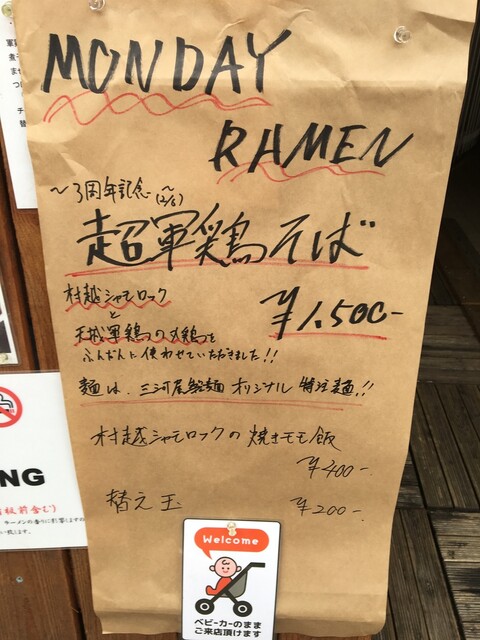 MONDAY
RAMEN
〜3周年記念〜(2/6)
超軍鶏そば
村越シャモロック
と
天越軍鶏の丸鶏を
ふんだんに使わせていただきました!!
¥1.500-
麺は、三河屋製麺 オリジナル 特注麺!!
村越シャモロックの焼きモモ飯
¥400-
替え玉 ¥200-
Welcome
ベビーカーのまま
ご来店頂けます
NG